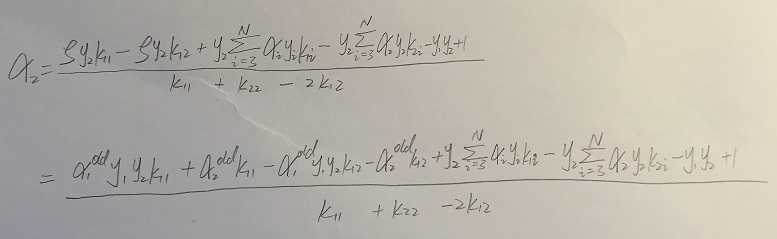 α₂ = (ζy₂k₁₁ − ζy₂k₁₂ + y₂ ∑_{i=3}^{N} αᵢyᵢk₁ᵢ − y₂ ∑_{i=3}^{N} α₂y₂k₂ᵢ − y₁y₂ + 1) / (k₁₁ + k₂₂ − 2k₁₂)
= (α₁^{old} y₁y₂k₁₁ + α₂^{old} k₁₁ − α₁^{old} y₁y₂k₁₂ − α₂^{old} k₁₂ + y₂ ∑_{i=3}^{N} αᵢyᵢk₁ᵢ − y₂ ∑_{i=3}^{N} α₂y₂k₂ᵢ − y₁y₂ + 1) / (k₁₁ + k₂₂ − 2k₁₂)